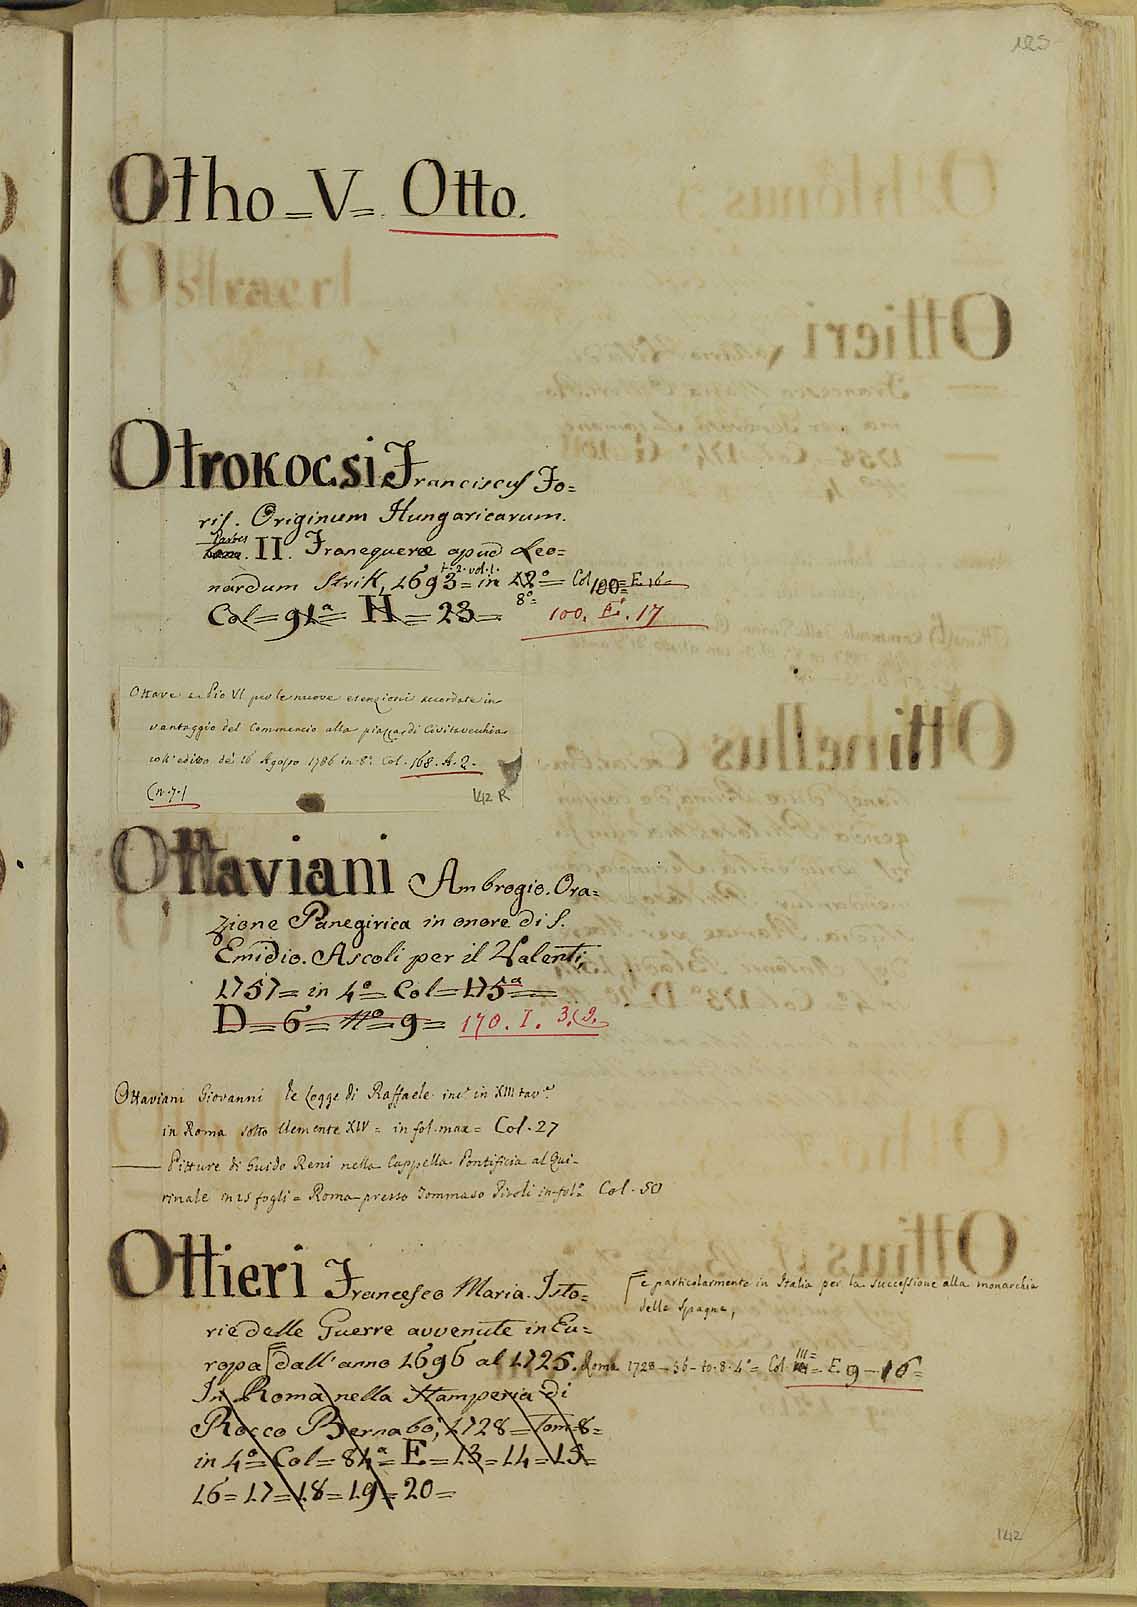 125
Otho = V = Otto.
Ostraert
Otrokocsi Franciscus Fo=
ris. Originum Hungaricarum.
Partes II. Franequeræ apud Leo=
nardum Strik, 1693 = in 12º = Col 100 = E 16
t. 2. vol. 1.
8º=
Col = 91ª = H = 23 = 100. E. 17
Ottave a Pio VI per le nuove esenzioni accordate in
vantaggio del Commercio alla piazza di Civitavecchia
coll' editto de' 16 Agosto 1786 in 8º Col. 168. A. 2.
(n. 7.)
142 R
Ottaviani Ambrogio. Ora=
zione Panegirica in onore di S.
Emidio. Ascoli per il Valenti,
1757 = in 4º = Col = 175ª =
D = 6 = nº = 9 = 170. I. 3.(9.
Ottaviani Giovanni le Logge di Raffaele inc.e in XIII tav.e
in Roma sotto Clemente XIV = in fol. max = Col. 27
—— Pitture di Guido Reni nella Cappella Pontificia al Qui-
rinale in 25 fogli = Roma presso Tommaso Piroli in fol.º Col. 50
Ottieri Francesco Maria. Isto=
rie delle Guerre avvenute in Eu=
ropa dall' anno 1696 al 1725. Roma 1728 - 56 - to. 8. 4º = Col. III = E. 9 - 16 =
e particolarmente in Italia per la successione alla monarchia
delle Spagne,
In Roma nella Stamperia di
Rocco Bernabò, 1728 = Tom = 8 =
in 4º = Col = 84ª = E = 13 = 14 = 15 =
16 = 17 = 18 = 19 = 20 =
142